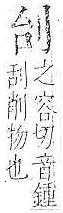 刣
之容切音鍾
刮削物也